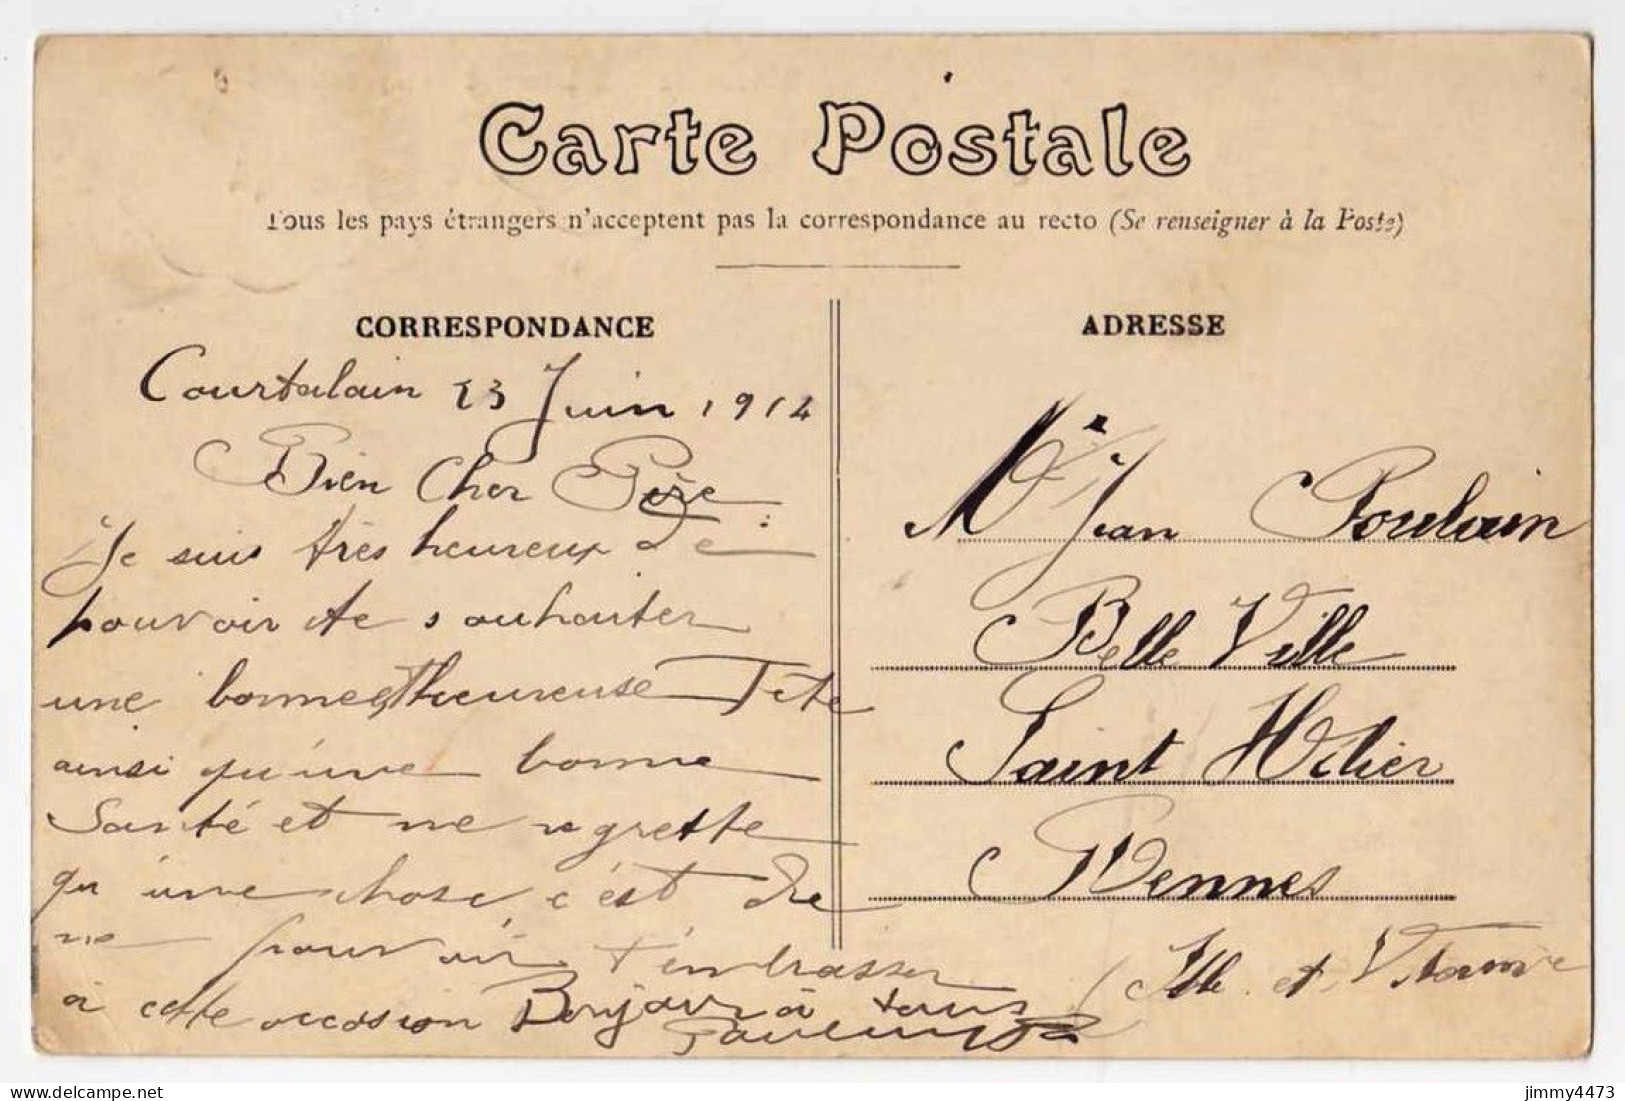 Carte Postale
Tous les pays étrangers n'acceptent pas la correspondance au recto (Se renseigner à la Poste)
CORRESPONDANCE
Courtalain 23 Juin 1914
Bien Cher Père
Je suis très heureux de
pouvoir te souhaiter
une bonne et heureuse Fete
ainsi qu'une bonne
Santé et ne regrette
qu'une chose c'est de
ne pouvoir t'embrasser
à cette occasion Bonjour à tous
ADRESSE
Mr Jean Poulain
Belle Ville
Saint Hélier
Rennes
(Ille et Vilaine
jimmy4473